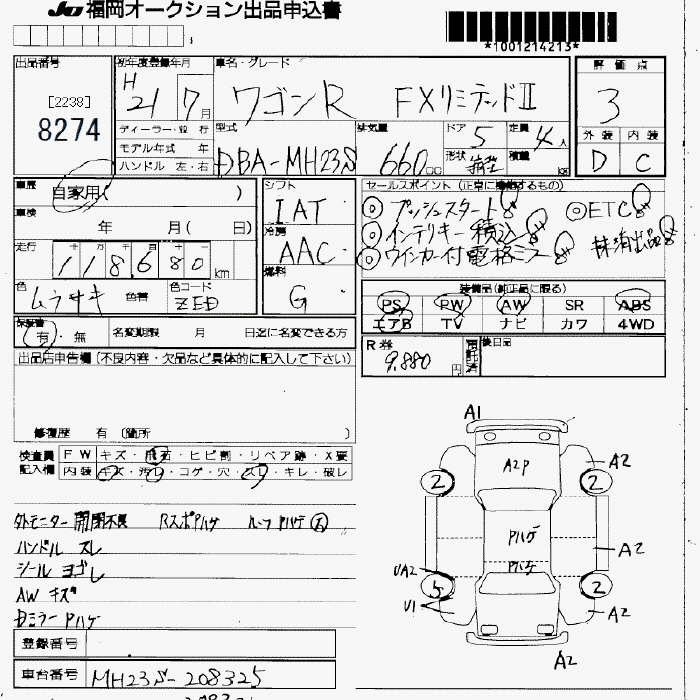 JU 福岡オークション出品申込書
*1001214213*
出品番号 [2238] 8274
初年度登録年月 H 21 7月
車名・グレード ワゴンR FXリミテッドⅡ
評価点 3
外装 D 内装 C
ディーラー・並行
モデル年式 年
ハンドル 左・右
型式 DBA-MH23S
排気量 660cc
ドア 5
形状
定員 4人
積載 kg
車歴 自家用( )
車検 年 月( 日)
走行 118,680km
色 ムラサキ 色替
色コード ZED
シフト IAT
冷房 AAC
燃料 G
セールスポイント(正常に機能するもの)
◎プッシュスタート ◎ETC
◎インテリキー 積込
◎ウインカー付電格ミラー
抹消出品
装備品(純正品に限る)
PS PW AW SR ABS
エアB TV ナビ カワ 4WD
保証書 有・無
名変期限 月 日迄に名変できる方
R券 9,880円
預託済
後日品
出品店申告欄(不良内容・欠品など具体的に記入して下さい)
修復歴 有(箇所 )
検査員記入欄
FW キズ・飛石・ヒビ割・リペア跡・X要
内装 キズ・汚レ・コゲ・穴・スレ・キレ・破レ
外トモニター 開閉不良 RスポPハゲ ルーフPハゲ 大
ハンドル スレ
シール ヨゴレ
AW キズ
DミラーPハゲ
登録番号
車台番号 MH23S-208325
A1
A2P
A2
2
2
Pハゲ
Pハゲ
A2
UA2
5
2
U1
A2
A2